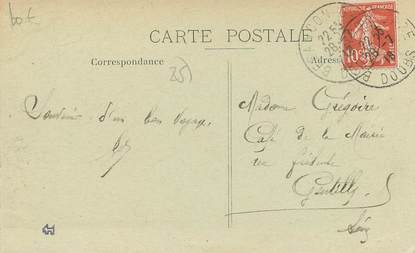 bot
CARTE POSTALE
Correspondance
25
Adresse
RÉPUBLIQUE FRANÇAISE
10c
BESANÇON
DOUBS
22 5
28-7
Souvenir d'un bon Voyage
Madame Grégoire
Café de la Mairie
rue
Gentilly